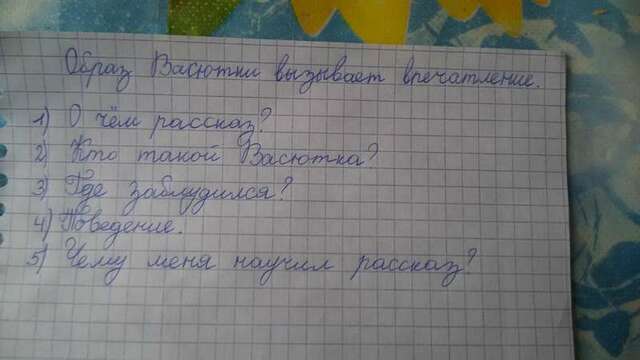 Образ Васютки вызывает впечатление.
1) О чём рассказ?
2) Кто такой Васютка?
3) Где заблудился?
4) Поведение.
5) Чему меня научил рассказ?